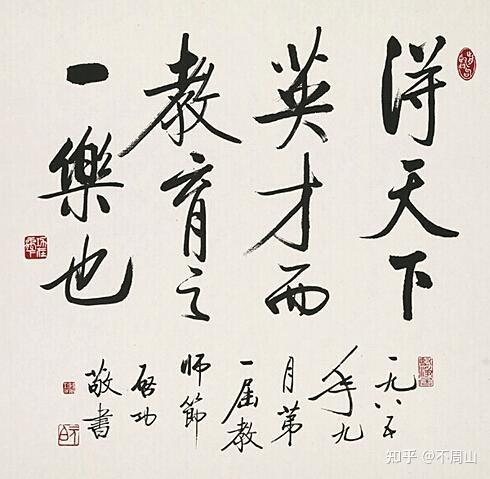 得天下
英才而
教育之
一樂也
一九八五
年九
月第
一届教
师節
啓功
敬書
知乎 @不周山